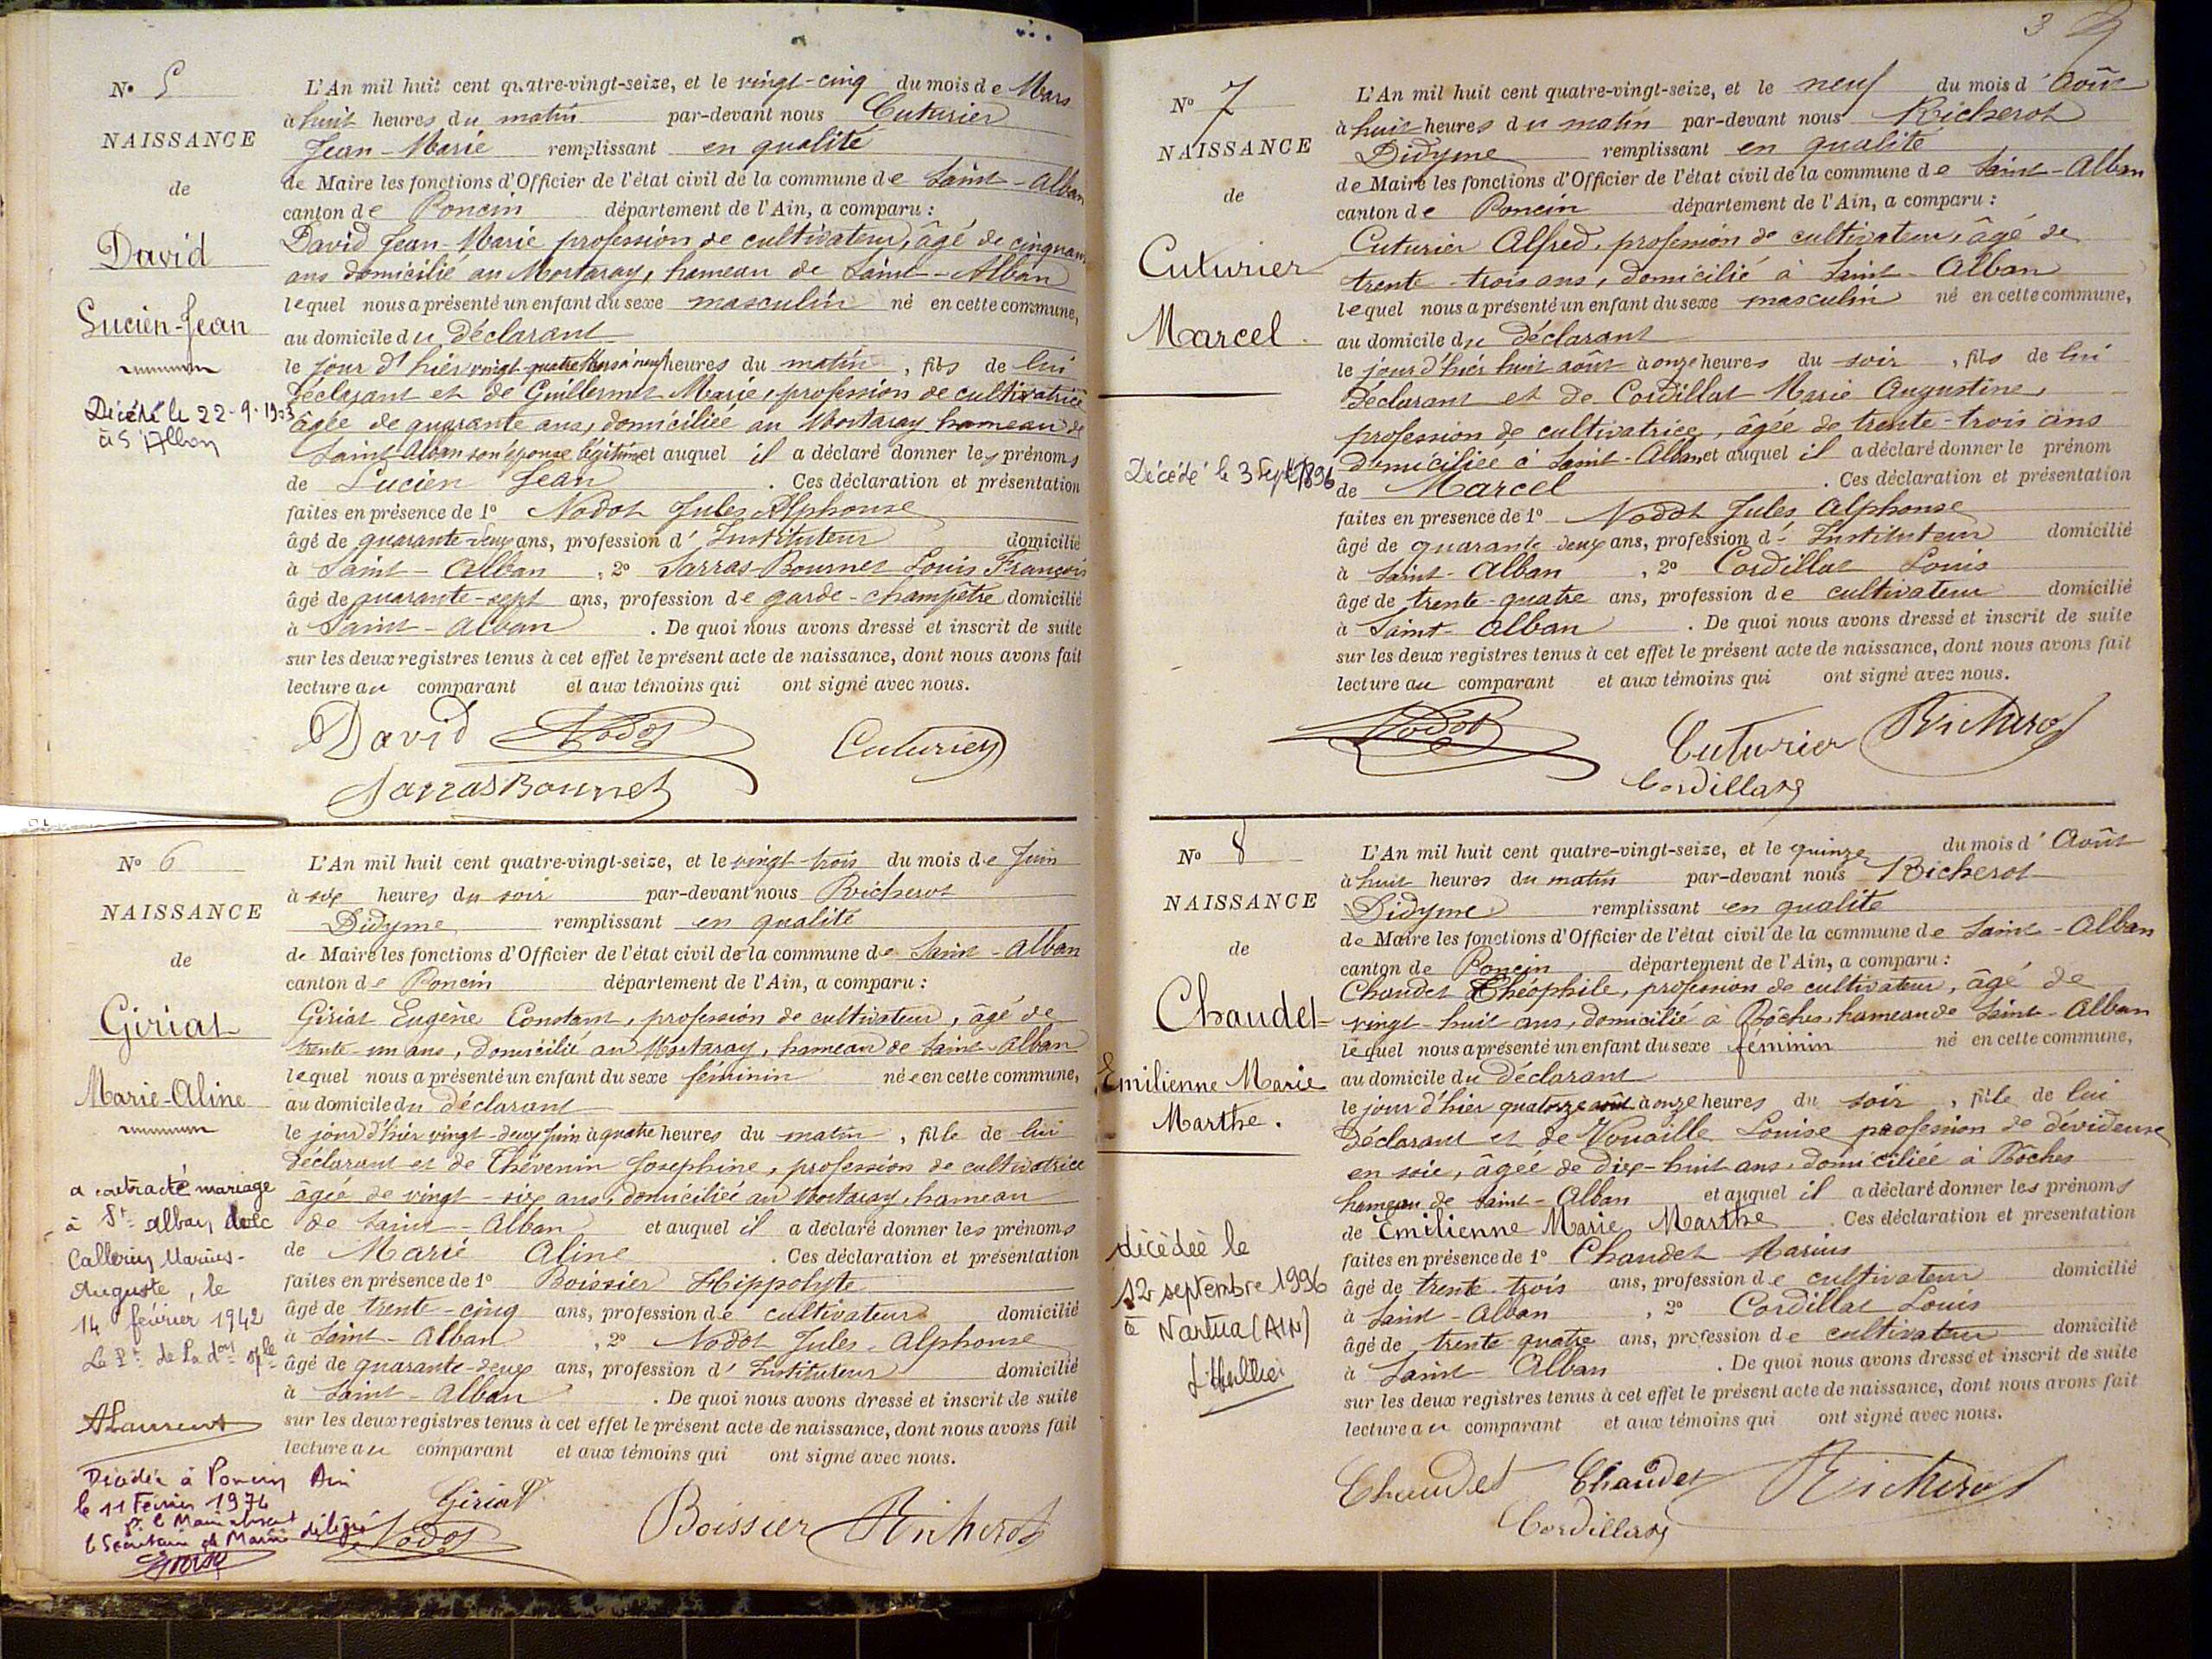 N° 5
NAISSANCE
de
David
Lucien-Jean
Décédé le 22-9-19
à S
L'An mil huit cent quatre-vingt-seize, et le vingt-cinq du mois de Mars
à huit heures du matin par-devant nous Cuturier
Jean-Marie remplissant en qualité
de Maire les fonctions d'Officier de l'état civil de la commune de Saint-Alban
canton de Poncin département de l'Ain, a comparu :
David Jean-Marie profession de cultivateur, âgé de cinquante
ans domicilié au Mortaray, hameau de Saint-Alban
lequel nous a présenté un enfant du sexe masculin né en cette commune,
au domicile du déclarant
le jour d'hier vingt-quatre Mars à neuf heures du matin, fils de lui
déclarant et de Guillermet Marie, profession de cultivatrice
âgée de quarante ans, domiciliée au Mortaray hameau de
Saint Alban son épouse légitime et auquel il a déclaré donner les prénoms
de Lucien Jean. Ces déclaration et présentation
faites en présence de 1° Nodot Jules Alphonse
âgé de quarante-deux ans, profession d'Instituteur domicilié
à Saint-Alban, 2° Sarras-Bournet Louis François
âgé de quarante-sept ans, profession de garde-champêtre domicilié
à Saint-Alban. De quoi nous avons dressé et inscrit de suite
sur les deux registres tenus à cet effet le présent acte de naissance, dont nous avons fait
lecture au comparant et aux témoins qui ont signé avec nous.
David Nodot Cuturier
Sarras Bournet
N° 6
NAISSANCE
de
Giriat
Marie-Aline
a contracté mariage
à St alban avec
Callerin Marius-
Auguste, le
14 février 1942
Le Pt de La don sple
ALaurent
Décédée à Poncin Ain
le 11 Février 1974
le Secrétaire de Mairie délégué
L'An mil huit cent quatre-vingt-seize, et le vingt-trois du mois de Juin
à six heures du soir par-devant nous Richerot
Didyme remplissant en qualité
de Maire les fonctions d'Officier de l'état civil de la commune de Saint-Alban
canton de Poncin département de l'Ain, a comparu :
Giriat Eugène Constant, profession de cultivateur, âgé de
trente-un ans, domicilié au Mortaray, hameau de Saint-Alban
lequel nous a présenté un enfant du sexe féminin née en cette commune,
au domicile du déclarant
le jour d'hier vingt-deux Juin à quatre heures du matin, fille de lui
déclarant et de Thévenin Josephine, profession de cultivatrice
âgée de vingt-six ans, domiciliée au Mortaray, hameau
de Saint-Alban et auquel il a déclaré donner les prénoms
de Marie Aline. Ces déclaration et présentation
faites en présence de 1° Boissier Hippolyte
âgé de trente-cinq ans, profession de cultivateur domicilié
à Saint-Alban, 2° Nodot Jules-Alphonse
âgé de quarante-deux ans, profession d'Instituteur domicilié
à Saint-Alban. De quoi nous avons dressé et inscrit de suite
sur les deux registres tenus à cet effet le présent acte de naissance, dont nous avons fait
lecture au comparant et aux témoins qui ont signé avec nous.
Giriat
Nodot Boissier Richerot
3
N° 7
NAISSANCE
de
Cuturier
Marcel.
Décédé le 3 Sept 1896
L'An mil huit cent quatre-vingt-seize, et le neuf du mois d'Août
à huit heures du matin par-devant nous Richerot
Didyme remplissant en qualité
de Maire les fonctions d'Officier de l'état civil de la commune de Saint-Alban
canton de Poncin département de l'Ain, a comparu :
Cuturier Alfred, profession de cultivateur, âgé de
trente-trois ans, domicilié à Saint-Alban
lequel nous a présenté un enfant du sexe masculin né en cette commune,
au domicile du déclarant
le jour d'hier huit août à onze heures du soir, fils de lui
déclarant et de Cordillat Marie Augustine,
profession de cultivatrice, âgée de trente-trois ans
domiciliée à Saint-Alban et auquel il a déclaré donner le prénom
de Marcel. Ces déclaration et présentation
faites en présence de 1° Nodot Jules Alphonse
âgé de quarante-deux ans, profession d'Instituteur domicilié
à Saint-Alban, 2° Cordillat Louis
âgé de trente-quatre ans, profession de cultivateur domicilié
à Saint-Alban. De quoi nous avons dressé et inscrit de suite
sur les deux registres tenus à cet effet le présent acte de naissance, dont nous avons fait
lecture au comparant et aux témoins qui ont signé avec nous.
Nodot Cuturier Richerot
Cordillat
N° 8
NAISSANCE
de
Chaudet
Emilienne Marie
Marthe.
décédée le
12 septembre 1996
à Nantua (AIN)
L'An mil huit cent quatre-vingt-seize, et le quinze du mois d'Août
à huit heures du matin par-devant nous Richerot
Didyme remplissant en qualité
de Maire les fonctions d'Officier de l'état civil de la commune de Saint-Alban
canton de Poncin département de l'Ain, a comparu :
Chaudet Théophile, profession de cultivateur, âgé de
vingt-huit ans, domicilié à Bôches, hameau de Saint-Alban
lequel nous a présenté un enfant du sexe féminin né en cette commune,
au domicile du déclarant
le jour d'hier quatorze août à onze heures du soir, fille de lui
déclarant et de Vouaille Louise profession de dévideuse
en soie, âgée de dix-huit ans, domiciliée à Bôches
hameau de Saint-Alban et auquel il a déclaré donner les prénoms
de Emilienne Marie Marthe. Ces déclaration et présentation
faites en présence de 1° Chaudet Marius
âgé de trente-trois ans, profession de cultivateur domicilié
à Saint-Alban, 2° Cordillat Louis
âgé de trente-quatre ans, profession de cultivateur domicilié
à Saint-Alban. De quoi nous avons dressé et inscrit de suite
sur les deux registres tenus à cet effet le présent acte de naissance, dont nous avons fait
lecture au comparant et aux témoins qui ont signé avec nous.
Chaudet Chaudet Richerot
Cordillat